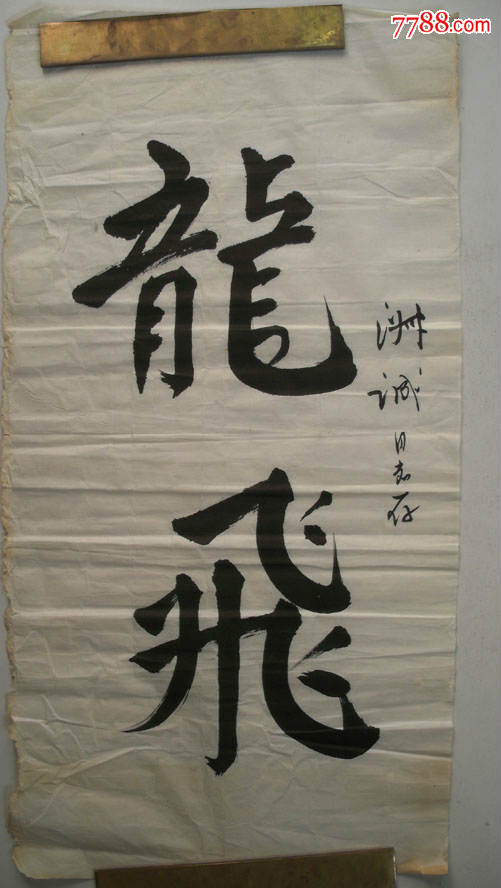 7788.com
龍飛
洲诚同志存